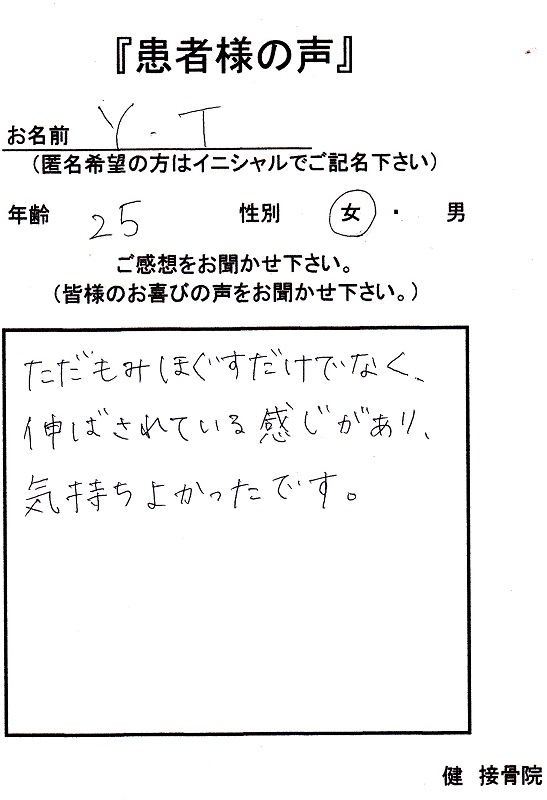 『患者様の声』
お名前 Y.T
(匿名希望の方はイニシャルでご記名下さい)
年齢 25 性別 女 ・ 男
ご感想をお聞かせ下さい。
(皆様のお喜びの声をお聞かせ下さい。)
ただもみほぐすだけでなく、
伸ばされている感じがあり、
気持ちよかったです。
健 接骨院